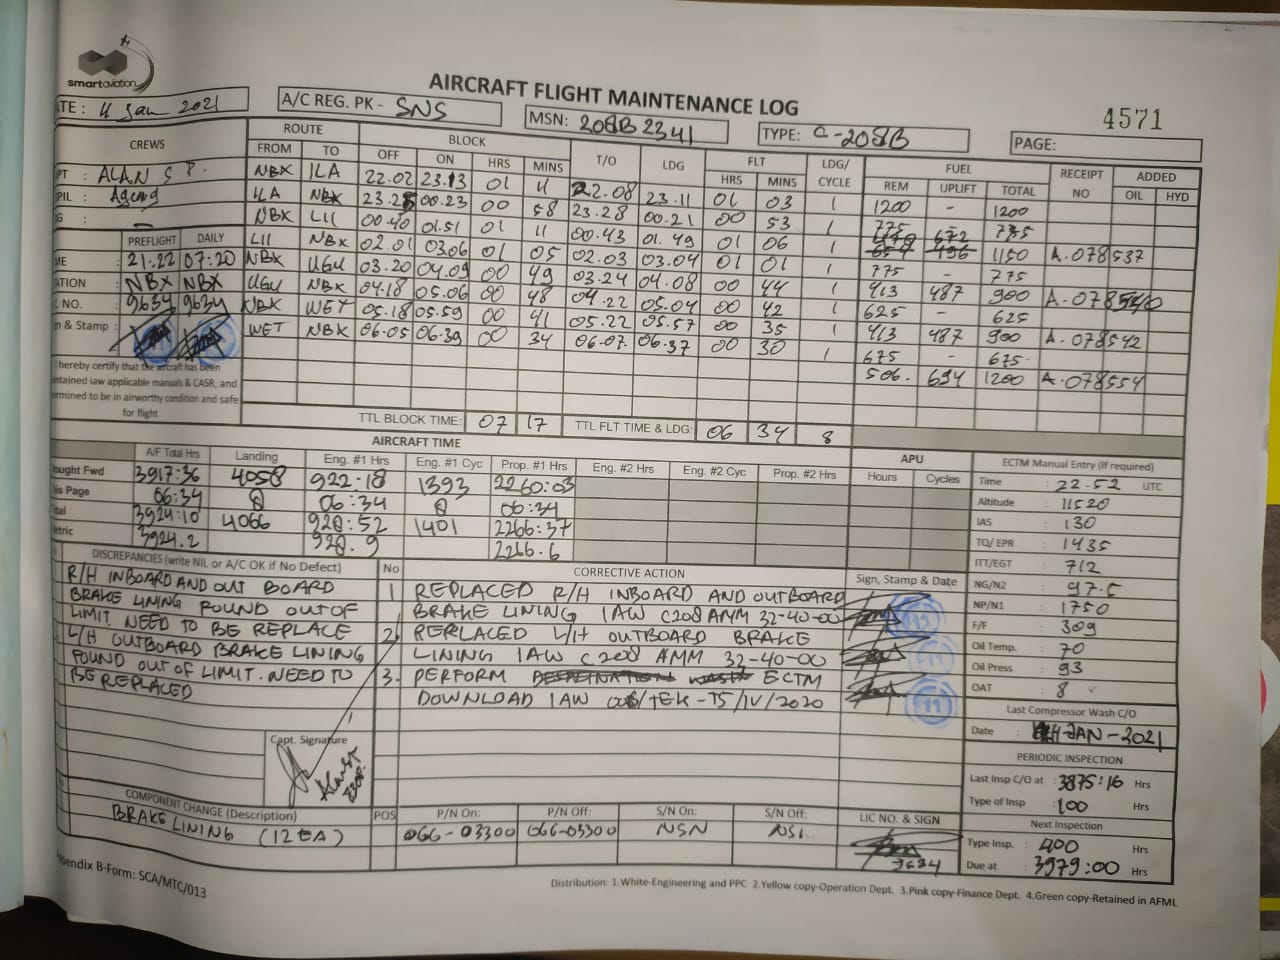 smartaviation
AIRCRAFT FLIGHT MAINTENANCE LOG
4571
ATE : 4 Jan 2021
A/C REG. PK - SNS
MSN: 208B2341
TYPE: C-208B
PAGE:
CREWS
ROUTE BLOCK T/O LDG FLT LDG/CYCLE FUEL RECEIPT NO ADDED
FROM TO OFF ON HRS MINS HRS MINS REM UPLIFT TOTAL OIL HYD
PT : ALAN S P.
PIL : Ageng
G :
NBX ILA 22.02 23.13 01 11 22.08 23.11 01 03 1 1200 - 1200
ILA NBX 23.25 00.23 00 58 23.28 00.21 00 53 1 775 - 775
NBX LII 00.40 01.51 01 11 00.43 01.49 01 06 1 1150 A.078537
LII NBX 02.01 03.06 01 05 02.03 03.04 01 01 1 775 - 775
NBX UGU 03.20 04.09 00 49 03.24 04.08 00 44 1 413 487 900 A.078540
UGU NBX 04.18 05.06 00 48 04.22 05.04 00 42 1 625 - 625
NBX WET 05.18 05.59 00 41 05.22 05.57 00 35 1 413 487 900 A.078542
WET NBX 06.05 06.39 00 34 06.07 06.37 00 30 1 675 - 675
506. 694 1200 A.078554
PREFLIGHT DAILY
ME : 21:22 07:20
ATION : NBX NBX
. NO. : 9634 9634
n & Stamp :
I hereby certify that the aircraft has been
ntained iaw applicable manuals & CASR, and
ermined to be in airworthy condition and safe
for flight
TTL BLOCK TIME: 07 17 TTL FLT TIME & LDG: 06 34 8
AIRCRAFT TIME
A/F Total Hrs Landing Eng. #1 Hrs Eng. #1 Cyc Prop. #1 Hrs Eng. #2 Hrs Eng. #2 Cyc Prop. #2 Hrs
ought Fwd 3917:36 4058 922:18 1393 2260:03
is Page 06:34 8 06:34 8 06:34
otal 3924:10 4066 928:52 1401 2266:37
etric 3924.2 928.9 2266.6
APU
Hours Cycles
ECTM Manual Entry (If required)
Time : 22.52 UTC
Altitude : 11520
IAS : 130
TQ/ EPR : 1435
ITT/EGT : 712
NG/N2 : 97.5
NP/N1 : 1750
F/F : 309
Oil Temp. : 70
Oil Press : 93
OAT : 8
Last Compressor Wash C/O
Date : JAN-2021
PERIODIC INSPECTION
Last Insp C/O at : 3875:16 Hrs
Type of Insp : 100 Hrs
Next Inspection
Type Insp. : 400 Hrs
Due at : 3979:00 Hrs
DISCREPANCIES (write NIL or A/C OK if No Defect)
R/H INBOARD AND OUT BOARD
BRAKE LINING FOUND OUT OF
LIMIT NEED TO BE REPLACE
L/H OUTBOARD BRAKE LINING
FOUND OUT OF LIMIT. NEED TO
BE REPLACED
Capt. Signature
No CORRECTIVE ACTION Sign, Stamp & Date
1 REPLACED R/H INBOARD AND OUTBOARD
BRAKE LINING IAW C208 AMM 32-40-00
2. PERLACED L/H OUTBOARD BRAKE
LINING IAW C208 AMM 32-40-00
3. PERFORM ECTM
DOWNLOAD IAW /TEK-TS/IV/2020
COMPONENT CHANGE (Description) POS P/N On: P/N Off: S/N On: S/N Off: LIC NO. & SIGN
BRAKE LINING (12 EA) 066-03300 066-03300 NSN
9634
Appendix B-Form: SCA/MTC/013
Distribution: 1.White-Engineering and PPC 2.Yellow copy-Operation Dept. 3.Pink copy-Finance Dept. 4.Green copy-Retained in AFML